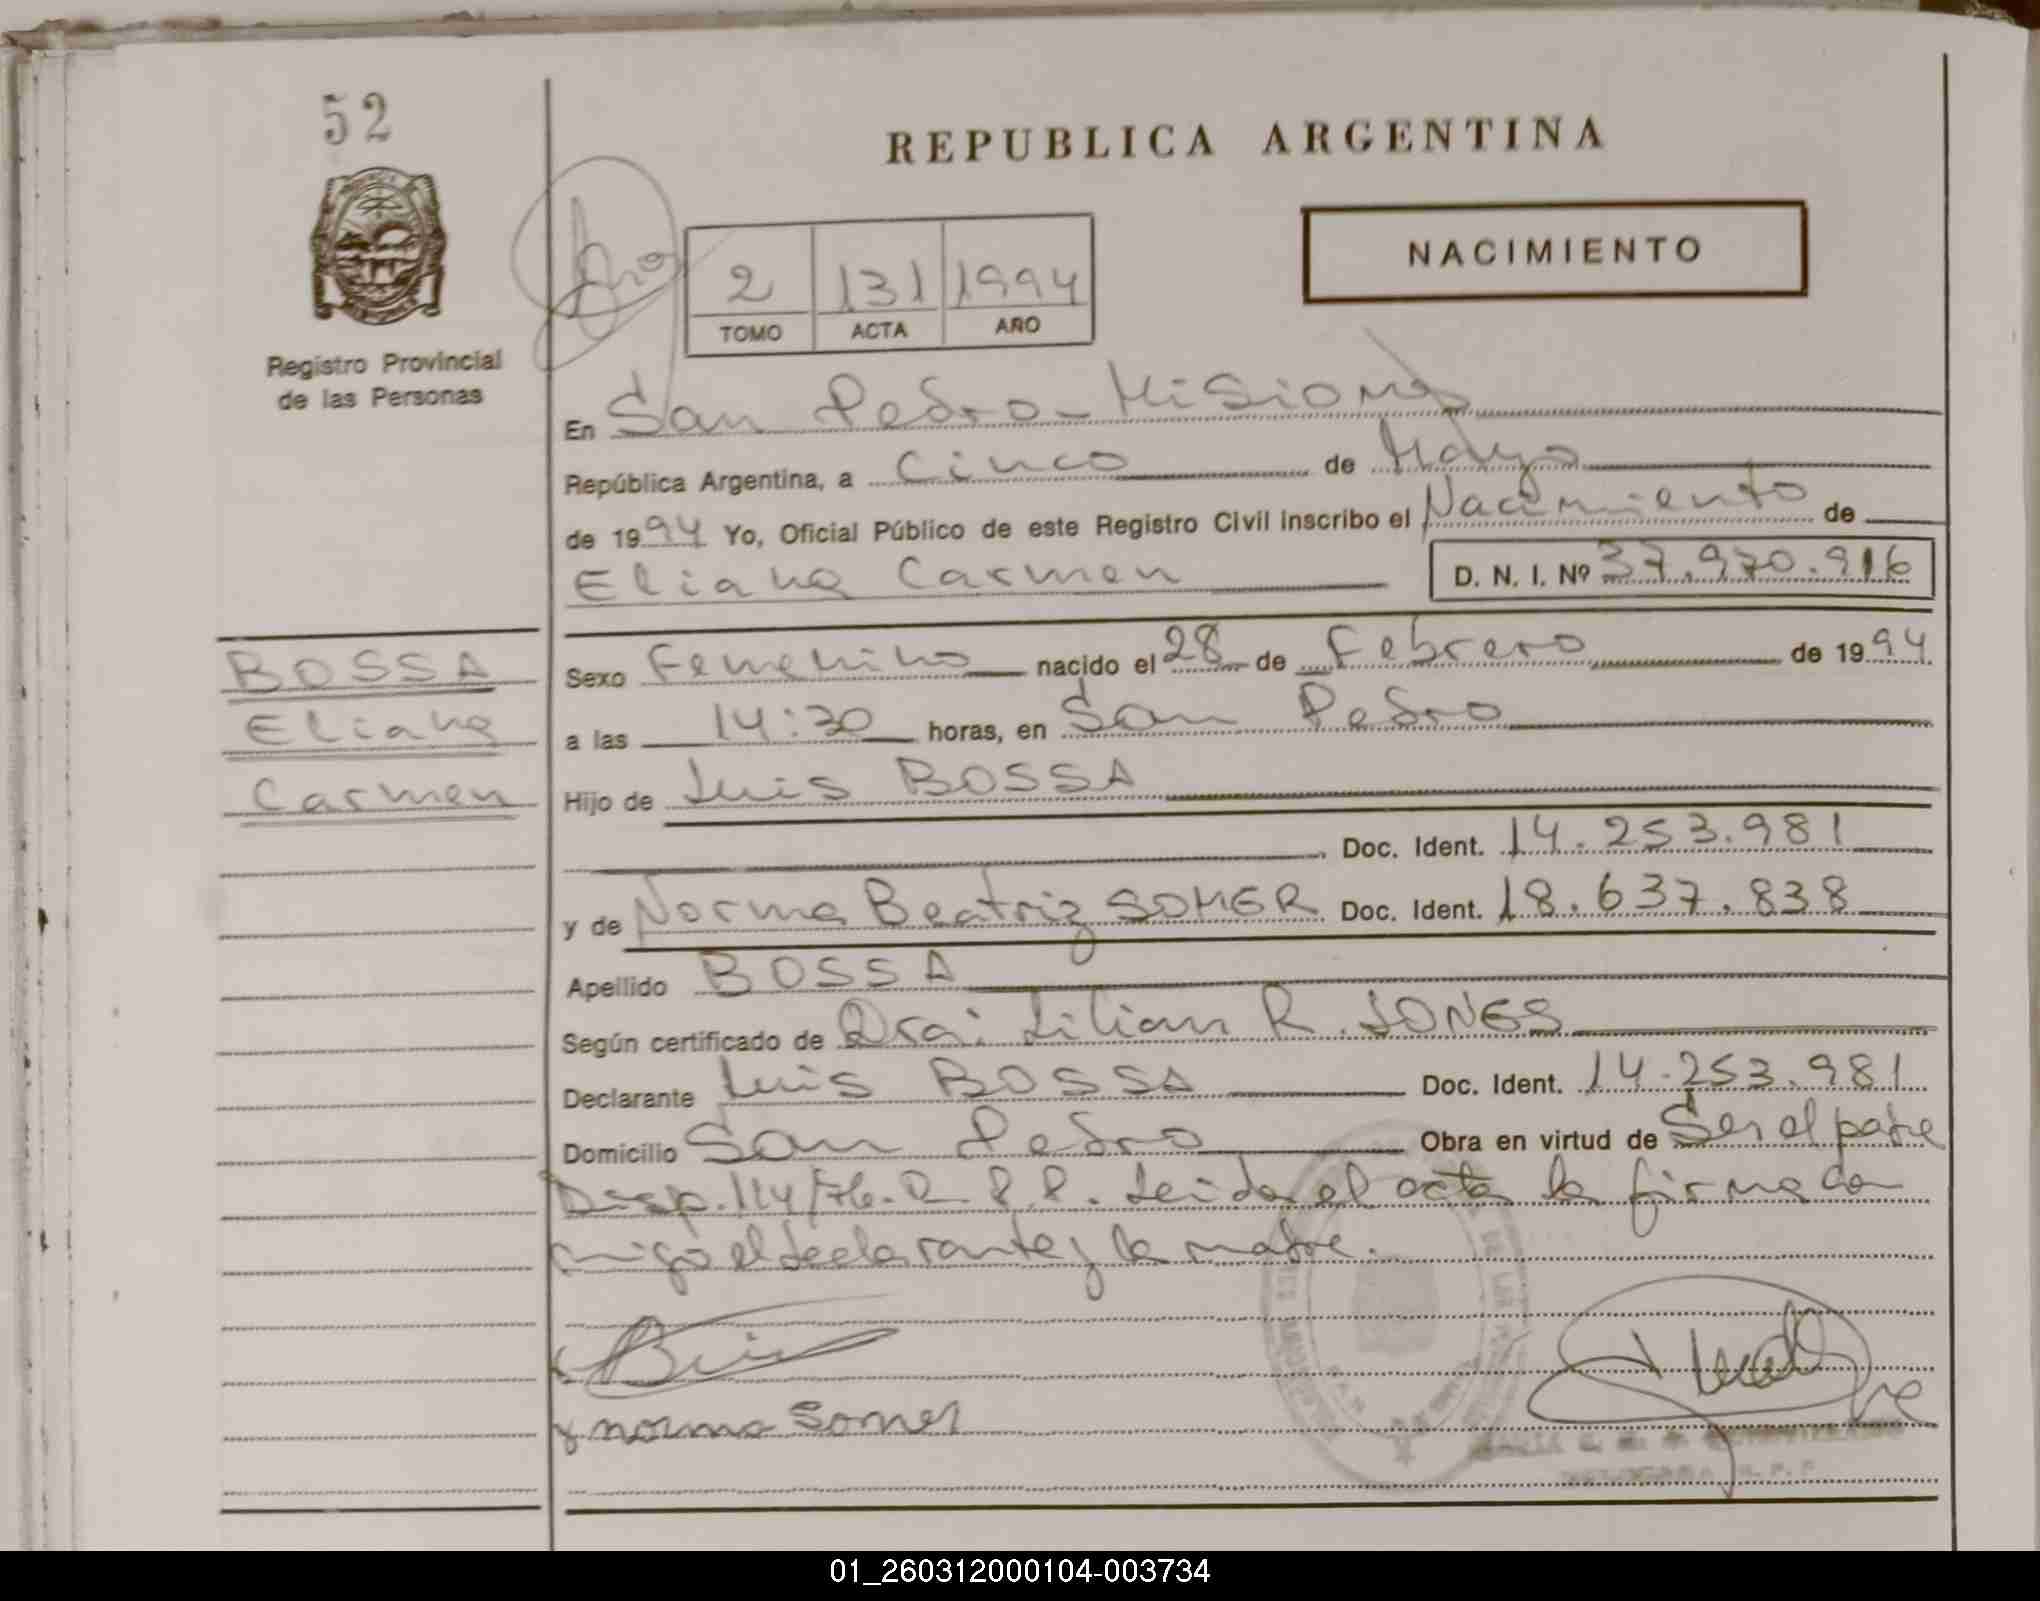 52
REPUBLICA ARGENTINA
NACIMIENTO
2 131 1994
TOMO ACTA AÑO
Registro Provincial
de las Personas
En San Pedro - Misiones
República Argentina, a Cinco de Mayo
de 1994 Yo, Oficial Público de este Registro Civil inscribo el Nacimiento de
Eliana Carmen D. N. I. Nº 37.970.916
BOSSA
Eliana
Carmen
Sexo Femenino nacido el 28 de Febrero de 1994
a las 14:30 horas, en San Pedro
Hijo de Luis BOSSA
Doc. Ident. 14.253.981
y de Norma Beatriz SOMER Doc. Ident. 18.637.838
Apellido BOSSA
Según certificado de Dra: Lilian R. JONES
Declarante Luis BOSSA Doc. Ident. 14.253.981
Domicilio San Pedro Obra en virtud de Ser el padre
Disp. 114/76. D. P. P. Leida el acta la firma con
migo el declarante y la madre.
norma Somer
01_260312000104-003734